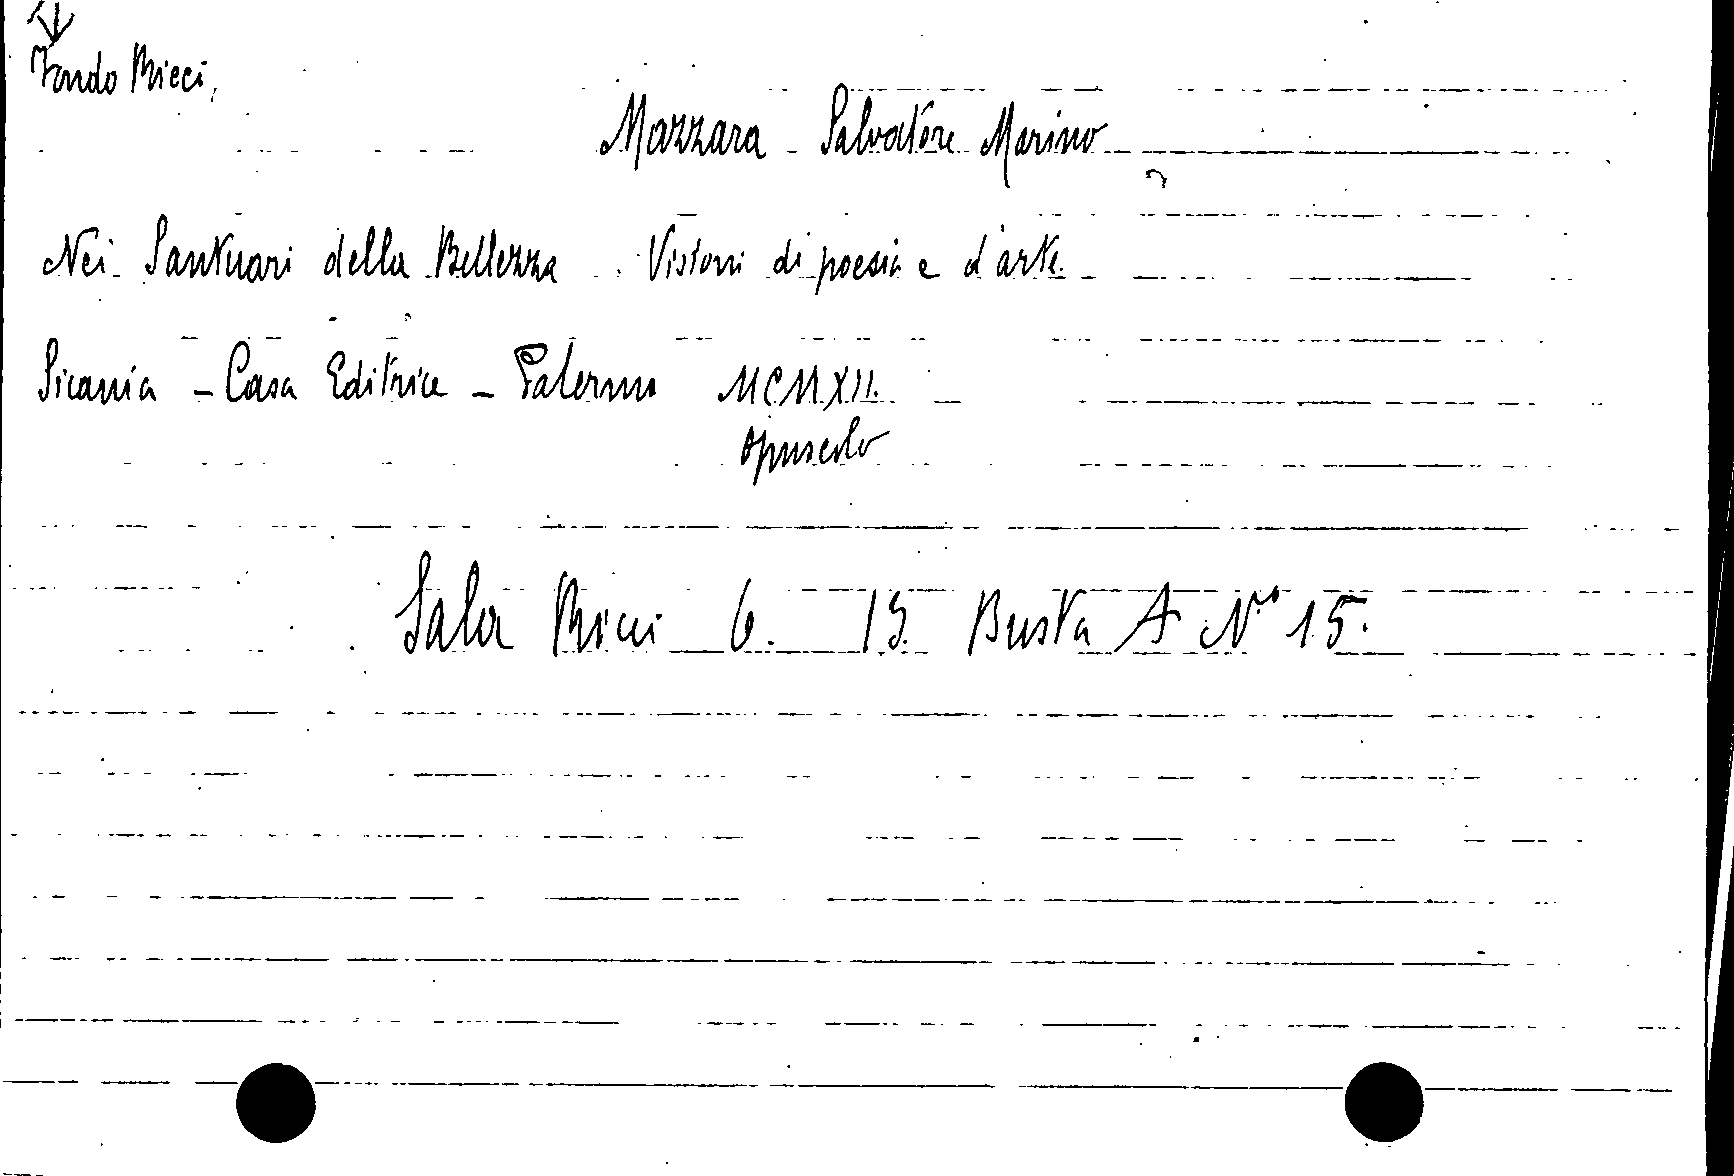 Fondo Ricci,
Mazzara Salvatore Marino
Nei Santuari della Bellezza. Visioni di poesia e d'arte.
Sicania - Casa Editrice - Palermo MCMXII.
opuscolo
Sala Ricci 6. 15. Busta A N° 15.